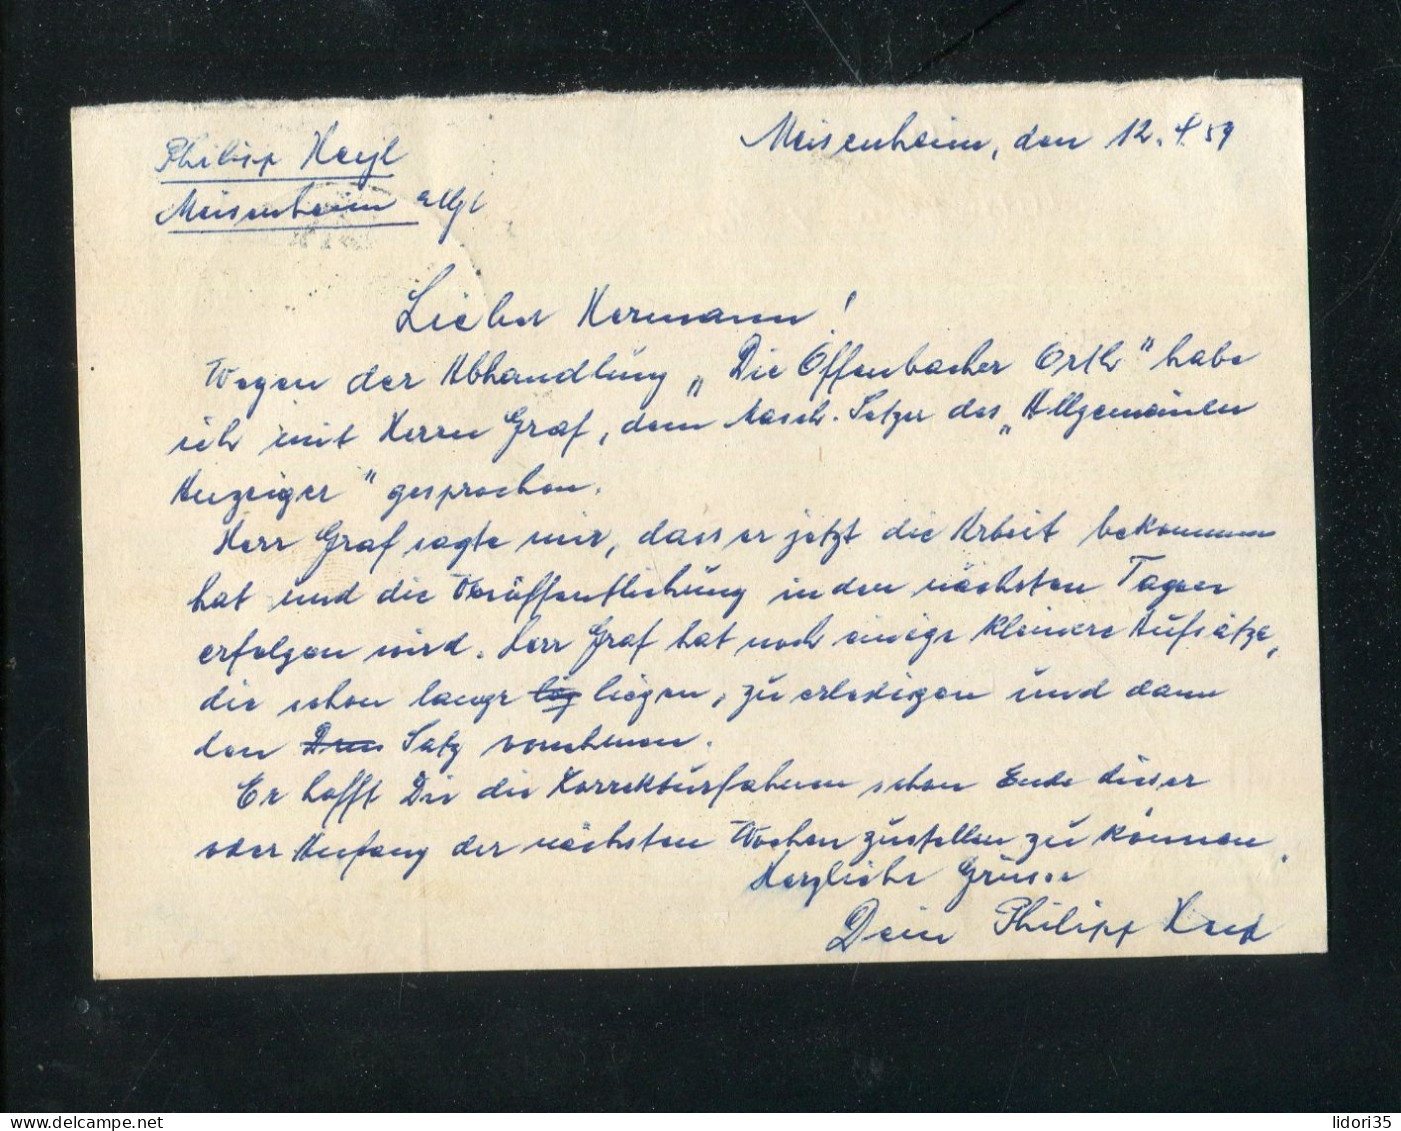 Philipp Heyl
Meisenheim, den 12. 4. 59
Meisenheim
Lieber Hermann!
Wegen der Abhandlung „Die Offenbacher Orth" habe
ich mit Herrn Graf, dem Masch. Setzer des „Allgemeinen
Anzeiger" gesprochen.
Herr Graf sagte mir, dass er jetzt die Arbeit bekommen
hat und die Veröffentlichung in den nächsten Tagen
erfolgen wird. Herr Graf hat noch einige kleinere Aufsätze,
die schon lange liegen, zu erledigen und dann
den Satz vornehmen.
Er hofft Dir die Korrekturfahnen schon Ende dieser
oder Anfang der nächsten Wochen zustellen zu können.
Herzliche Grüsse
Dein Philipp
lidori35